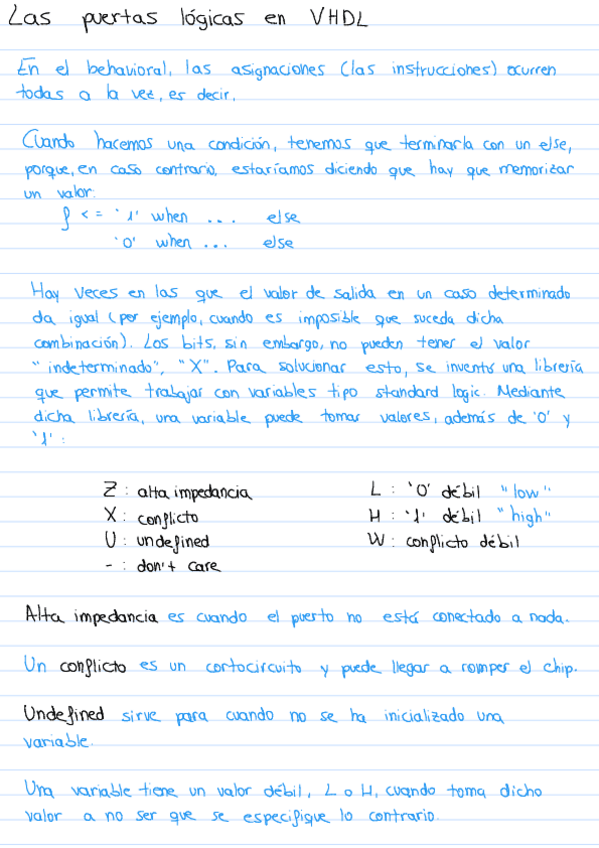 Las puertas lógicas en VHDL
En el behavioral, las asignaciones (las instrucciones) ocurren
todas a la vez, es decir,
Cuando hacemos una condición, tenemos que terminarla con un else,
porque, en caso contrario, estaríamos diciendo que hay que memorizar
un valor:
f <= '1' when ... else
'0' when ... else
Hay veces en las que el valor de salida en un caso determinado
da igual (por ejemplo, cuando es imposible que suceda dicha
combinación). Los bits, sin embargo, no pueden tener el valor
"indeterminado", "X". Para solucionar esto, se inventó una librería
que permite trabajar con variables tipo standard logic. Mediante
dicha librería, una variable puede tomar valores, además de '0' y
'1':
Z: alta impedancia L: '0' débil "low"
X: conflicto H: '1' débil "high"
U: undefined W: conflicto débil
-: don't care
Alta impedancia es cuando el puerto no está conectado a nada.
Un conflicto es un cortocircuito y puede llegar a romper el chip.
Undefined sirve para cuando no se ha inicializado una
variable.
Una variable tiene un valor débil, L o H, cuando toma dicho
valor a no ser que se especifique lo contrario.